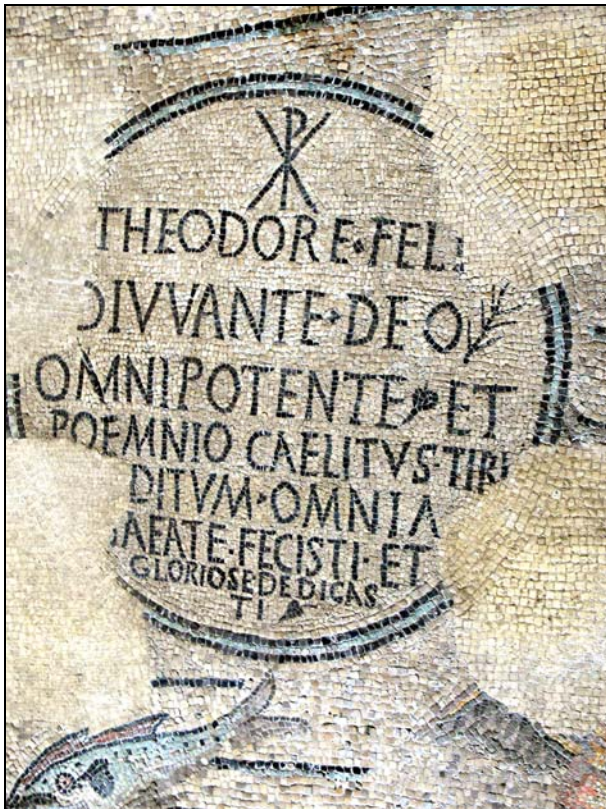 ☧
THEODORE·FELI
DIVVANTE·DEO
OMNIPOTENTE ET
POEMNIO CAELITVS·TIBI
DITVM·OMNIA
AEATE·FECISTI·ET
GLORIOSE DEDICAS
TI